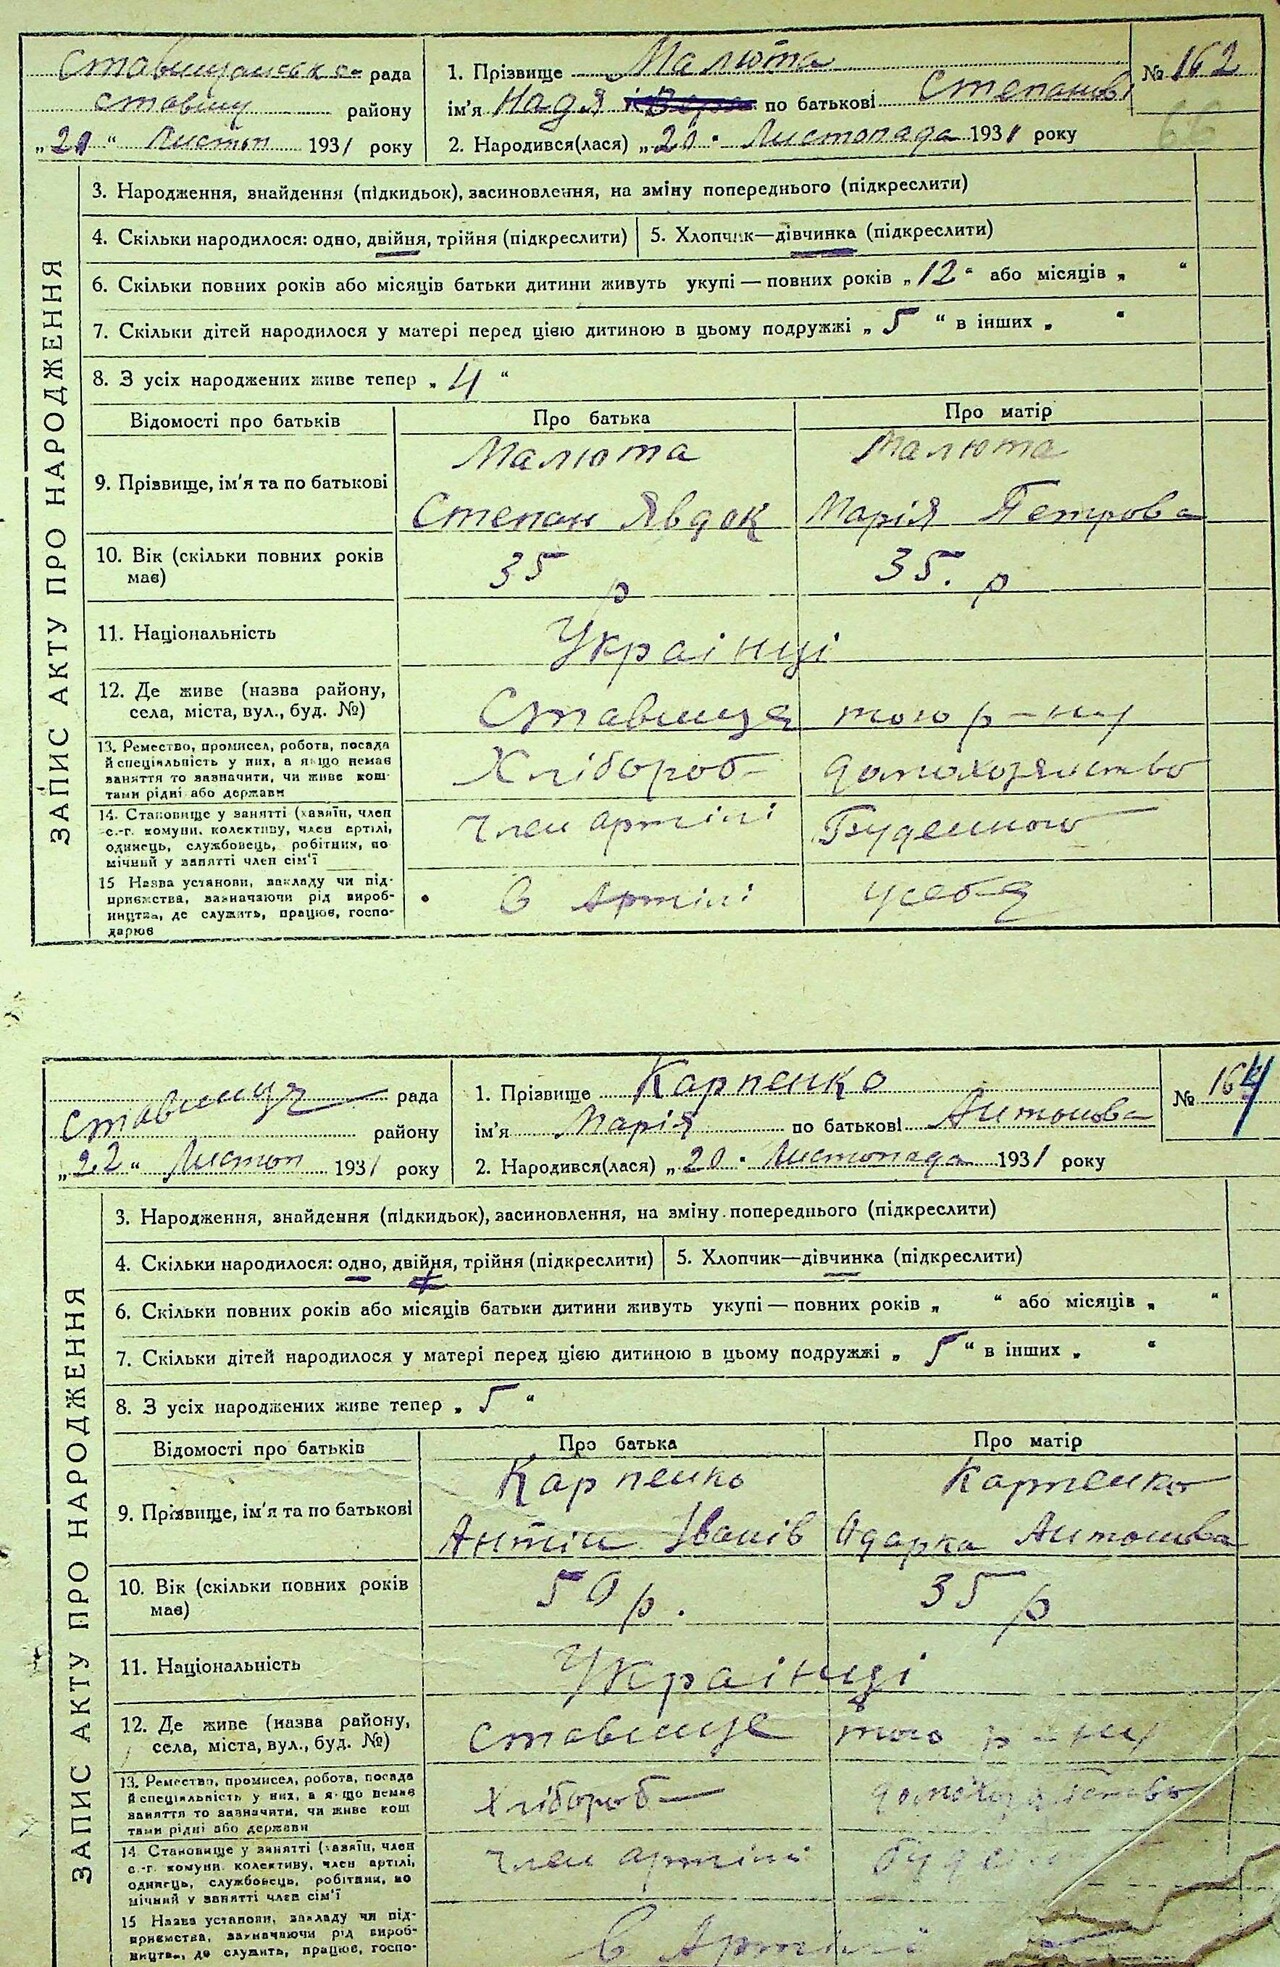 Ставищанська рада
Ставищ району
„21“ Листоп 1931 року
1. Прізвище Малюта
ім'я Надя по батькові Степанов
2. Народився(лася) „20“ Листопада 1931 року
№ 162
66
ЗАПИС АКТУ ПРО НАРОДЖЕННЯ
3. Народження, знайдення (підкидьок), засиновлення, на зміну попереднього (підкреслити)
4. Скільки народилося: одно, двійня, трійня (підкреслити) 5. Хлопчик—дівчинка (підкреслити)
6. Скільки повних років або місяців батьки дитини живуть укупі — повних років „12“ або місяців „ “
7. Скільки дітей народилося у матері перед цією дитиною в цьому подружжі „5“ в інших „ “
8. З усіх народжених живе тепер „4“
Відомості про батьків Про батька Про матір
9. Прізвище, ім'я та по батькові
Малюта Малюта
Степан Явдок Марія Петрова
10. Вік (скільки повних років має)
35 р 35. р
11. Національність Українці
12. Де живе (назва району,
села, міста, вул., буд. №)
Ставище того р-ну
13. Ремество, промисел, робота, посада
й спеціяльність у них, а якщо немає
заняття то зазначити, чи живе кош-
тами рідні або держави
Хлібороб домохозяйство
14. Становище у занятті (хазяїн, член
с.-г. комуни, колективу, член артілі,
одинець, службовець, робітник, по
мічний у занятті член сім'ї
Член артілі Буденного
15 Назва установи, закладу чи під-
приємства, зазначаючи рід вироб-
ництва, де служить, працює, госпо-
дарює
в Артілі у себя
Ставище рада
району
„22“ Листоп 1931 року
1. Прізвище Карпенко
ім'я Марія по батькові Антонова
2. Народився(лася) „20“ Листопада 1931 року
№ 164
ЗАПИС АКТУ ПРО НАРОДЖЕННЯ
3. Народження, знайдення (підкидьок), засиновлення, на зміну попереднього (підкреслити)
4. Скільки народилося: одно, двійня, трійня (підкреслити) 5. Хлопчик—дівчинка (підкреслити)
6. Скільки повних років або місяців батьки дитини живуть укупі — повних років „ “ або місяців „ “
7. Скільки дітей народилося у матері перед цією дитиною в цьому подружжі „5“ в інших „ “
8. З усіх народжених живе тепер „5“
Відомості про батьків Про батька Про матір
9. Прізвище, ім'я та по батькові
Карпенко Карпенко
Антін Іванів Одарка Антонова
10. Вік (скільки повних років має)
50 р. 35 р
11. Національність Українці
12. Де живе (назва району,
села, міста, вул., буд. №)
Ставище того р-ну
13. Ремество, промисел, робота, посада
й спеціяльність у них, а якщо немає
заняття то зазначити, чи живе кош
тами рідні або держави
Хлібороб домохозяйство
14. Становище у занятті (хазяїн, член
с.-г. комуни, колективу, член артілі,
одинець, службовець, робітник, по
мічний у занятті член сім'ї
Член артілі
15 Назва установи, закладу чи під-
приємства, зазначаючи рід вироб-
ництва, де служить, працює, госпо-
в Артілі